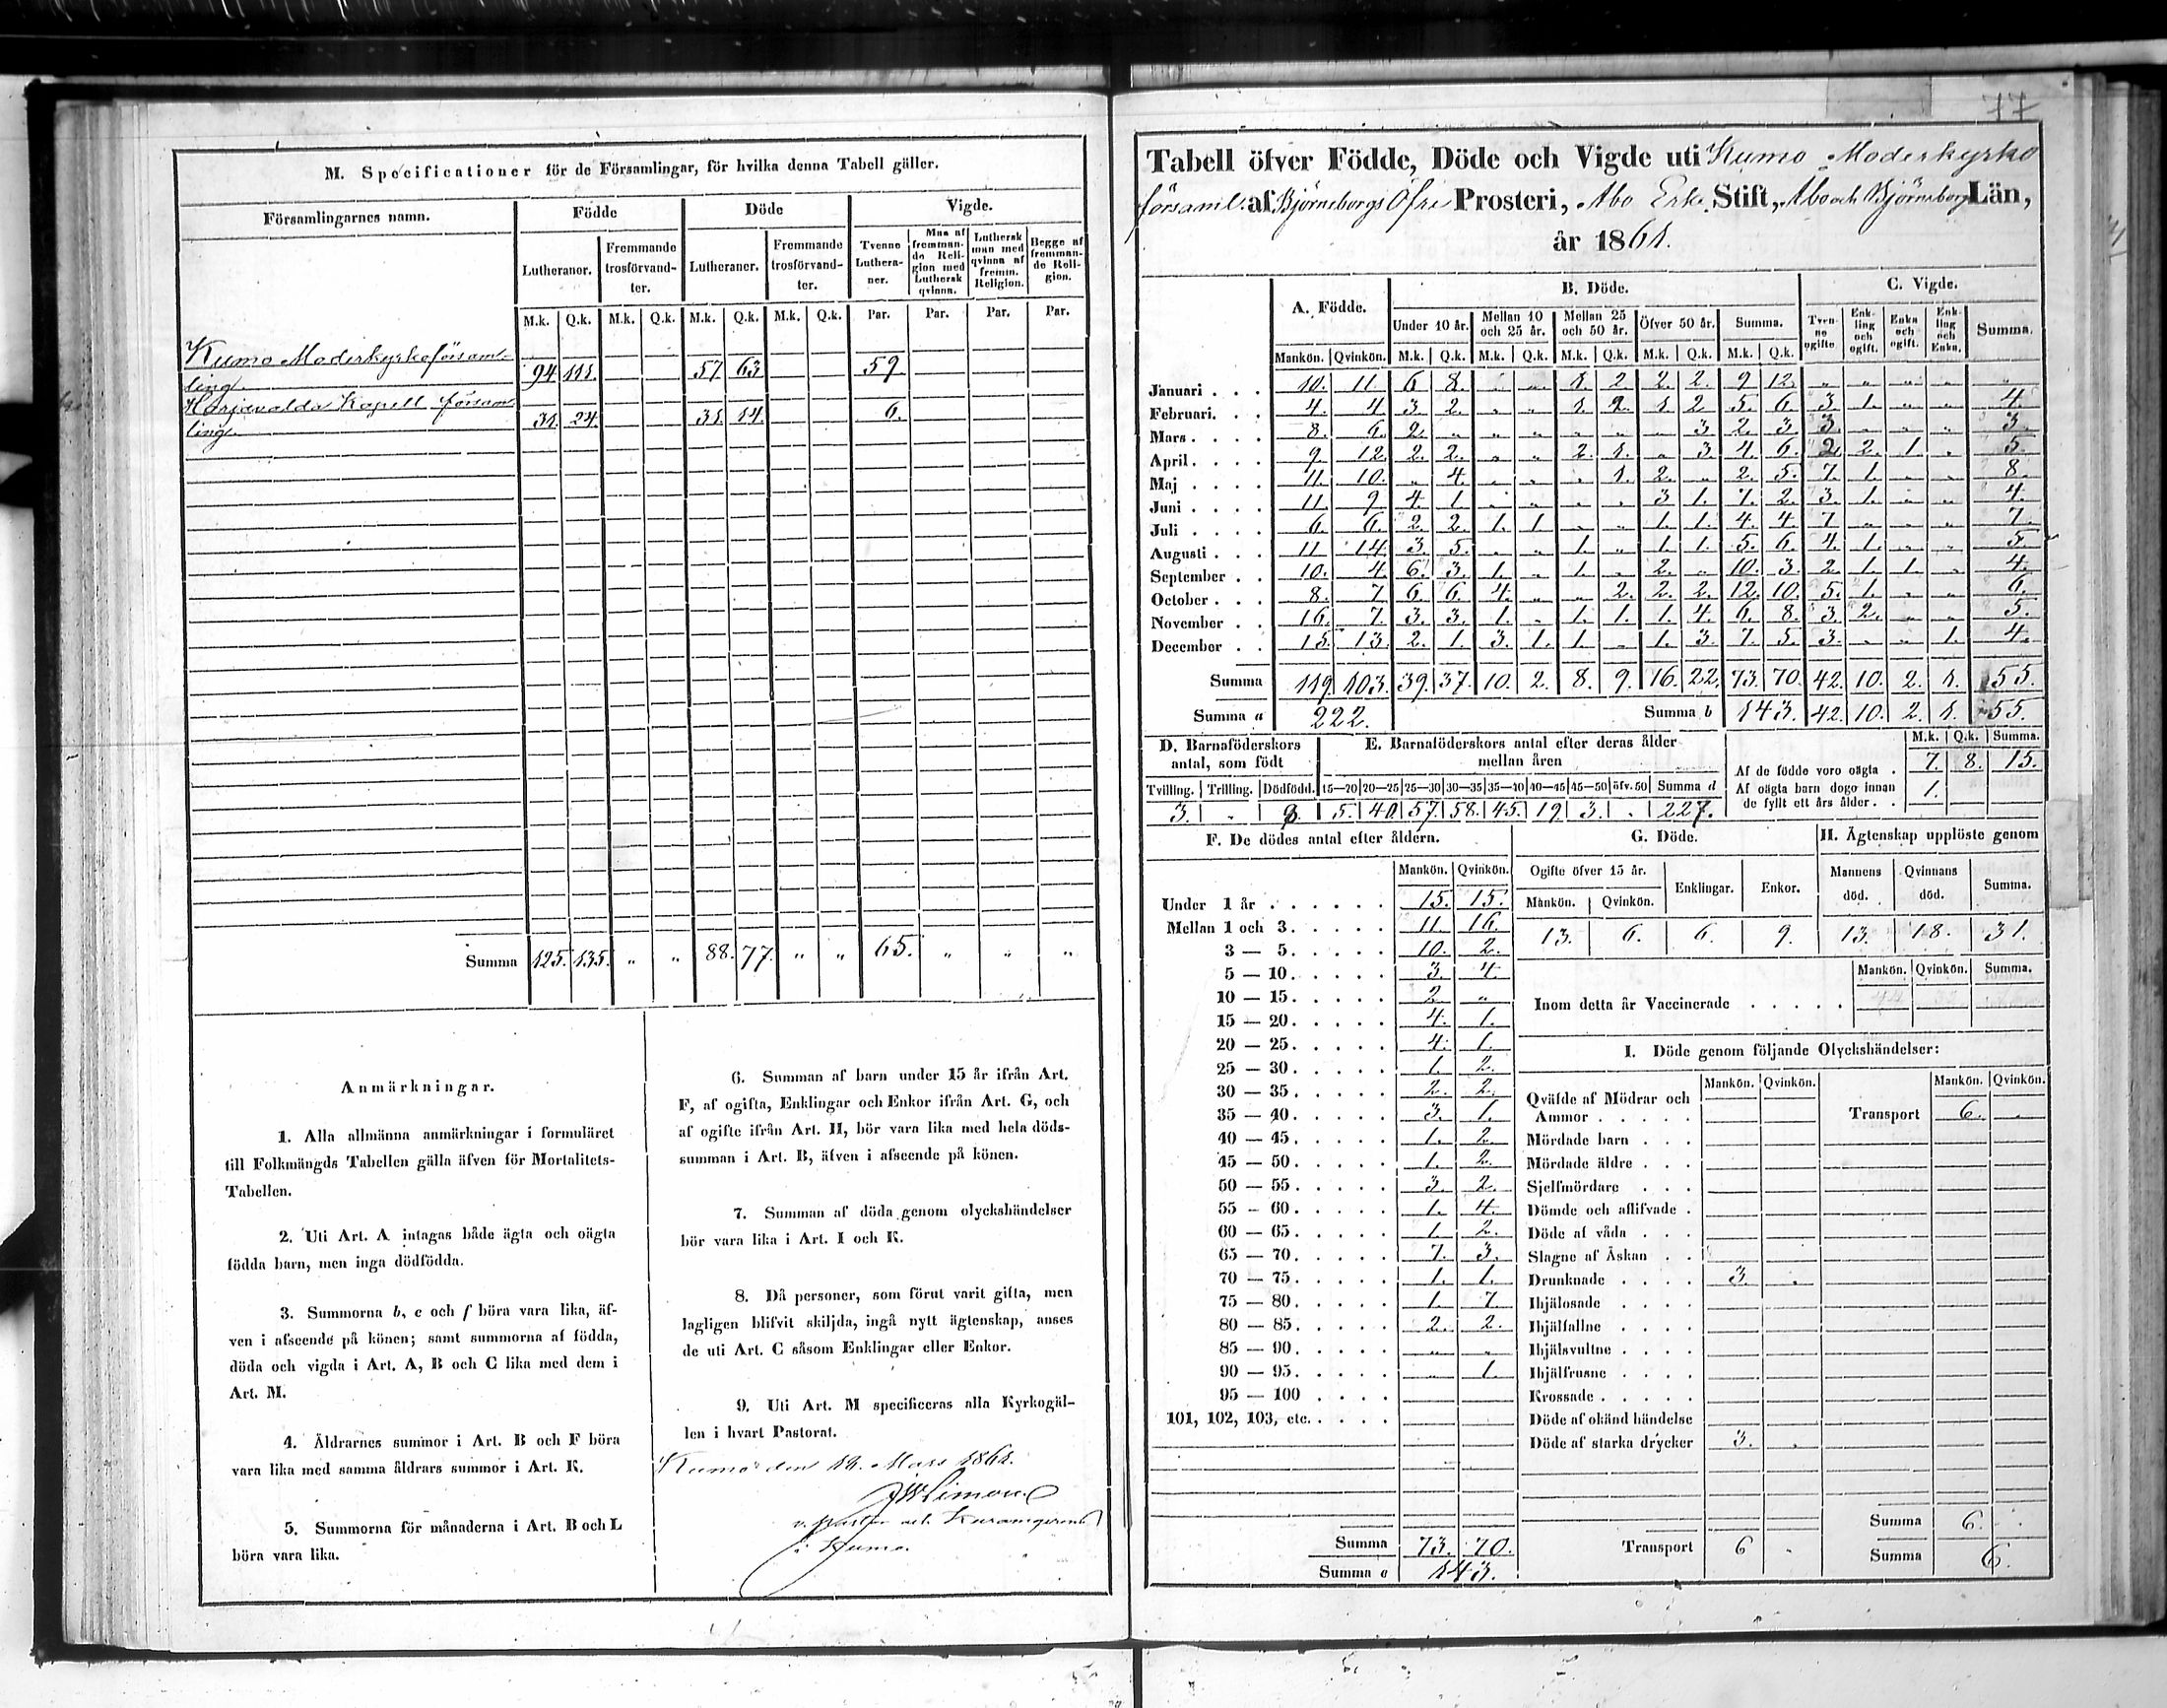 M. Specificationer för de Församlingar, för hvilka denna Tabell gäller.
Församlingarnes namn. | Födde | Döde | Vigde.
Lutheraner. | Fremmande trosförvandter. | Lutheraner. | Fremmande trosförvandter. | Tvenne Lutheraner. | Man af fremmande Religion med Luthersk qvinna. | Luthersk man med qvinna af fremm. Religion. | Begge af fremmande Religion.
M.k. | Q.k. | M.k. | Q.k. | M.k. | Q.k. | M.k. | Q.k. | Par. | Par. | Par. | Par.
Kumo Moderkyrkoförsamling. | 94 | 111. | | | 57 | 63 | | | 59
Harjavalda Kapell församling. | 31. | 24. | | | 31. | 14. | | | 6.
Summa | 125. | 135. | " | " | 88. | 77. | " | " | 65. | " | " | "
Anmärkningar.
1. Alla allmänna anmärkningar i formuläret
till Folkmängds Tabellen gälla äfven för Mortalitets-
Tabellen.
2. Uti Art. A intagas både ägta och oägta
födda barn, men inga dödfödda.
3. Summorna b, c och f böra vara lika, äf-
ven i afseende på könen; samt summorna af födda,
döda och vigda i Art. A, B och C lika med dem i
Art. M.
4. Åldrarnes summor i Art. B och F böra
vara lika med samma åldrars summor i Art. K.
5. Summorna för månaderna i Art. B och L
böra vara lika.
6. Summan af barn under 15 år ifrån Art.
F, af ogifta, Enklingar och Enkor ifrån Art. G, och
af ogifte ifrån Art. H, bör vara lika med hela döds-
summan i Art. B, äfven i afseende på könen.
7. Summan af döda genom olyckshändelser
bör vara lika i Art. I och K.
8. Då personer, som förut varit gifta, men
lagligen blifvit skiljda, ingå nytt ägtenskap, anses
de uti Art. C såsom Enklingar eller Enkor.
9. Uti Art. M specificeras alla Kyrkogäl-
len i hvart Pastorat.
Kumo den 12. Mars 1861.
i Kumo.
77
Tabell öfver Födde, Döde och Vigde uti Kumo Moderkyrko
församl. af Björneborgs Öfre Prosteri, Åbo Erke Stift, Åbo och Björneborg Län,
år 1861.
A. Födde. | B. Döde. | C. Vigde.
Under 10 år. | Mellan 10 och 25 år. | Mellan 25 och 50 år. | Öfver 50 år. | Summa. | Tvenne ogifte | Enkling och ogift. | Enka och ogift. | Enkling och Enka. | Summa.
Mankön. | Qvinkön. | M.k. | Q.k. | M.k. | Q.k. | M.k. | Q.k. | M.k. | Q.k. | M.k. | Q.k.
Januari . . . | 10. | 11. | 6 | 8. | " | " | 1. | 2. | 2. | 2. | 9 | 12. | " | " | " | " | "
Februari. . . | 4. | 4. | 3. | 2. | " | " | 1. | 2. | 1. | 2. | 5. | 6. | 3. | 1. | " | " | 4.
Mars . . . . | 8. | 6. | 2. | " | " | " | " | " | " | 3. | 2. | 3. | 3. | " | " | " | 3.
April. . . . | 9. | 12. | 2. | 2. | " | " | 2. | 1. | " | 3. | 4. | 6. | 2. | 2. | 1. | " | 5.
Maj . . . . | 11. | 10. | " | 4. | " | " | " | 1. | 2. | " | 2. | 5. | 7. | 1. | " | " | 8.
Juni . . . . | 11. | 9. | 4. | 1. | " | " | " | " | 3. | 1. | 7. | 2. | 3. | 1. | " | " | 4.
Juli . . . . | 6. | 6. | 2. | 2. | 1. | 1. | " | " | 1. | 1. | 4. | 4. | 7. | " | " | " | 7.
Augusti . . . | 11. | 14. | 3. | 5. | " | " | 1. | " | 1. | 1. | 5. | 6. | 4. | 1. | " | " | 5.
September . . | 10. | 4. | 6. | 3. | 1. | " | 1. | " | 2. | " | 10. | 3. | 2. | 1. | 1. | " | 4.
October . . . | 8. | 7. | 6. | 6. | 4. | " | " | 2. | 2. | 2. | 12. | 10. | 5. | 1. | " | " | 6.
November . . | 16. | 7. | 3. | 3. | 1. | " | 1. | 1. | 1. | 4. | 6. | 8. | 3. | 2. | " | " | 5.
December . . | 15. | 13. | 2. | 1. | 3. | 1. | 1. | " | 1. | 3. | 7. | 5. | 3. | " | " | 1. | 4.
Summa | 119. | 103. | 39. | 37. | 10. | 2. | 8. | 9. | 16. | 22. | 73. | 70. | 42. | 10. | 2. | 1. | 55.
Summa a | 222. | Summa b | 143. | 42. | 10. | 2. | 1. | 55.
D. Barnaföderskors antal, som födt | E. Barnaföderskors antal efter deras ålder mellan åren
Tvilling. | Trilling. | Dödfödd. | 15—20 | 20—25 | 25—30 | 30—35 | 35—40 | 40—45 | 45—50 | öfv. 50 | Summa d
3. | " | 8. | 5. | 40. | 57. | 58. | 45. | 19. | 3. | " | 227.
M.k. | Q.k. | Summa.
Af de födde voro oägta . | 7. | 8. | 15.
Af oägta barn dogo innan de fyllt ett års ålder . . | 1.
F. De dödes antal efter åldern.
Mankön. | Qvinkön.
Under 1 år . . . . . . | 15. | 15.
Mellan 1 och 3. . . . . | 11. | 16.
3 — 5. . . . . | 10. | 2.
5 — 10. . . . . | 3. | 4.
10 — 15. . . . . | 2. | "
15 — 20. . . . . | 4. | 1.
20 — 25. . . . . | 4. | 1.
25 — 30. . . . . | 1. | 2.
30 — 35. . . . . | 2. | 2.
35 — 40. . . . . | 3. | 1.
40 — 45. . . . . | 1. | 2.
45 — 50. . . . . | 1. | 2.
50 — 55. . . . . | 3. | 2.
55 — 60. . . . . | 1. | 4.
60 — 65. . . . . | 1. | 2.
65 — 70. . . . . | 7. | 3.
70 — 75. . . . . | 1. | 1.
75 — 80. . . . . | 1. | 7.
80 — 85. . . . . | 2. | 2.
85 — 90. . . . . | " | "
90 — 95. . . . . | " | 1.
95 — 100 . . . .
101, 102, 103, etc. . . . .
Summa | 73. | 70.
Summa c | 143.
G. Döde.
Ogifte öfver 15 år. | Enklingar. | Enkor.
Mankön. | Qvinkön.
13. | 6. | 6. | 9.
H. Ägtenskap upplöste genom
Mannens död. | Qvinnans död. | Summa.
13. | 18. | 31.
Mankön. | Qvinkön. | Summa.
Inom detta år Vaccinerade . . . . .
I. Döde genom följande Olyckshändelser:
Mankön. | Qvinkön. | Mankön. | Qvinkön.
Qväfde af Mödrar och Ammor . . . . . | Transport | 6. | "
Mördade barn . . .
Mördade äldre . . .
Sjelfmördare . . .
Dömde och aflifvade .
Döde af våda . . .
Slagne af Åskan . .
Drunknade . . . . | 3. | "
Ihjälosade . . . .
Ihjälfallne . . . .
Ihjälsvultne . . . .
Ihjälfrusne . . . .
Krossade . . . . .
Döde af okänd händelse
Döde af starka drycker | 3. | "
Summa | 6. | "
Transport | 6 | " | Summa | 6.